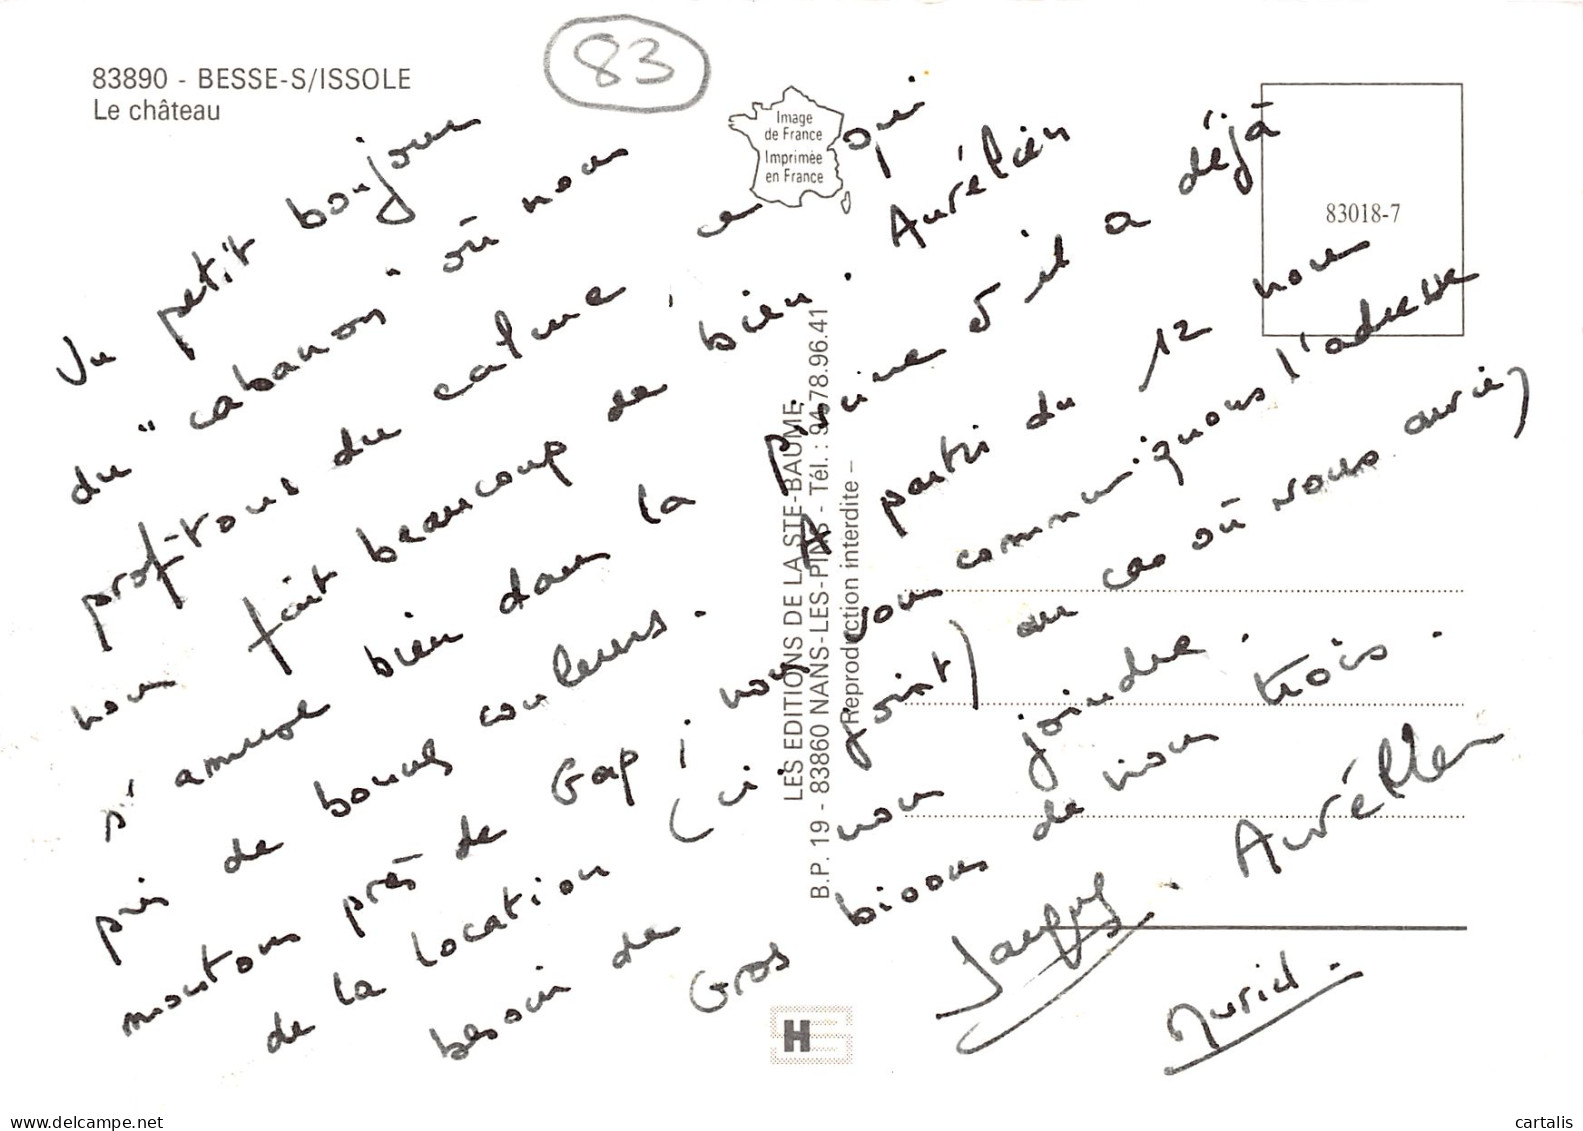 83890 - BESSE-S/ISSOLE
Le château
83
Image
de France
Imprimée
en France
83018-7
Un petit bonjour
du "cabanon" où nous
profitons du calme ce qui
nous fait beaucoup de bien. Aurélien
s'amuse bien dans la piscine & il a déjà
pris de bonnes couleurs. A partir du 12 nous
moutons près de Gap ; nous vous communiquons l'adresse
de la location (ci-joint) au cas où vous auriez
besoin de nous joindre.
Gros bisous de nous trois.
Jacques. Aurélien
Muriel.
LES EDITIONS DE LA STE-BAUME
B.P. 19 - 83860 NANS-LES-PINS - Tél. : 94.78.96.41
Reproduction interdite –
H
delcampe.net
cartalis